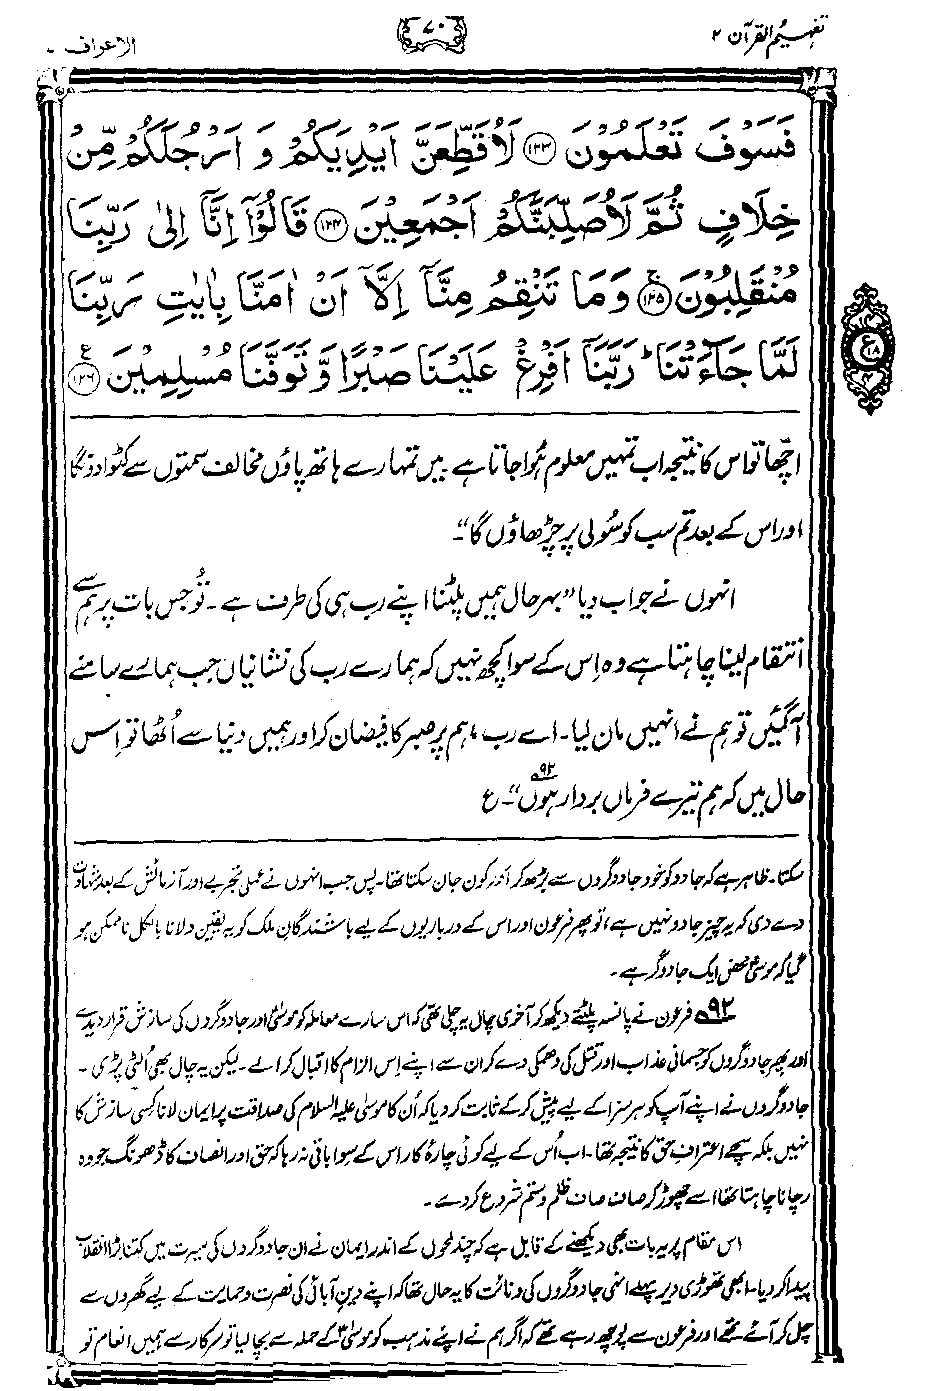 تفہیم القرآن ۲
۷۰
الاعراف ۷
فَسَوْفَ تَعْلَمُوْنَ ﴿۱۲۳﴾ لَاُقَطِّعَنَّ اَيْدِيَكُمْ وَ اَرْجُلَكُمْ مِّنْ
خِلَافٍ ثُمَّ لَاُصَلِّبَنَّكُمْ اَجْمَعِيْنَ ﴿۱۲۴﴾ قَالُوْۤا اِنَّاۤ اِلٰى رَبِّنَا
مُنْقَلِبُوْنَ ۚ﴿۱۲۵﴾ وَمَا تَنْقِمُ مِنَّاۤ اِلَّاۤ اَنْ اٰمَنَّا بِاٰيٰتِ رَبِّنَا
لَمَّا جَآءَتْنَا ؕ رَبَّنَاۤ اَفْرِغْ عَلَيْنَا صَبْرًا وَّ تَوَفَّنَا مُسْلِمِيْنَ ﴿۱۲۶﴾ ع
ع ۱۸
اچھا تو اس کا نتیجہ اب تمہیں معلوم ہُوا جاتا ہے۔ میں تمہارے ہاتھ پاؤں مخالف سمتوں سے کٹوا دونگا
اور اس کے بعد تم سب کو سُولی پر چڑھاؤں گا“۔
انہوں نے جواب دیا ”بہر حال ہمیں پلٹنا اپنے رب ہی کی طرف ہے۔ تُو جس بات پر ہم سے
انتقام لینا چاہتا ہے وہ اِس کے سوا کچھ نہیں کہ ہمارے رب کی نشانیاں جب ہمارے سامنے
آ گئیں تو ہم نے انہیں مان لیا۔ اے رب، ہم پر صبر کا فیضان کر اور ہمیں دنیا سے اُٹھا تو اِس
حال میں کہ ہم تیرے فرماں بردار ہوں ۹۲“۔ ع
سکتا۔ ظاہر ہے کہ جادو کو خود جادوگروں سے بڑھ کر اور کون جان سکتا تھا۔ پس جب انہوں نے عملی تجربے اور آزمائش کے بعد شہادت
دے دی کہ یہ چیز جادو نہیں ہے، تو پھر فرعون اور اس کے درباریوں کے لیے باشندگانِ ملک کو یہ یقین دلانا بالکل ناممکن ہو
گیا کہ موسیٰؑ محض ایک جادوگر ہے۔
۹۲ فرعون نے پانسہ پلٹتے دیکھ کر آخری چال یہ چلی تھی کہ اس سارے معاملہ کو موسیٰؑ اور جادوگروں کی سازش قرار دیدے
اور پھر جادوگروں کو جسمانی عذاب اور قتل کی دھمکی دے کر ان سے اپنے اِس الزام کا اقبال کرا لے۔ لیکن یہ چال بھی اُلٹی پڑی۔
جادوگروں نے اپنے آپ کو ہر سزا کے لیے پیش کر کے ثابت کر دیا کہ اُن کا موسیٰ علیہ السلام کی صداقت پر ایمان لانا کسی سازش کا
نہیں بلکہ سچے اعترافِ حق کا نتیجہ تھا۔ اب اُس کے لیے کوئی چارۂ کار اس کے سوا باقی نہ رہا کہ حق اور انصاف کا ڈھونگ جو وہ
رچانا چاہتا تھا اسے چھوڑ کر صاف صاف ظلم و ستم شروع کر دے۔
اس مقام پر یہ بات بھی دیکھنے کے قابل ہے کہ چند لمحوں کے اندر ایمان نے ان جادوگروں کی سیرت میں کتنا بڑا انقلاب
پیدا کر دیا۔ ابھی تھوڑی دیر پہلے انہی جادوگروں کی دنائت کا یہ حال تھا کہ اپنے دینِ آبائی کی نصرت و حمایت کے لیے گھروں سے
چل کر آئے تھے اور فرعون سے پوچھ رہے تھے کہ اگر ہم نے اپنے مذہب کو موسیٰؑ کے حملہ سے بچا لیا تو سرکار سے ہمیں انعام تو